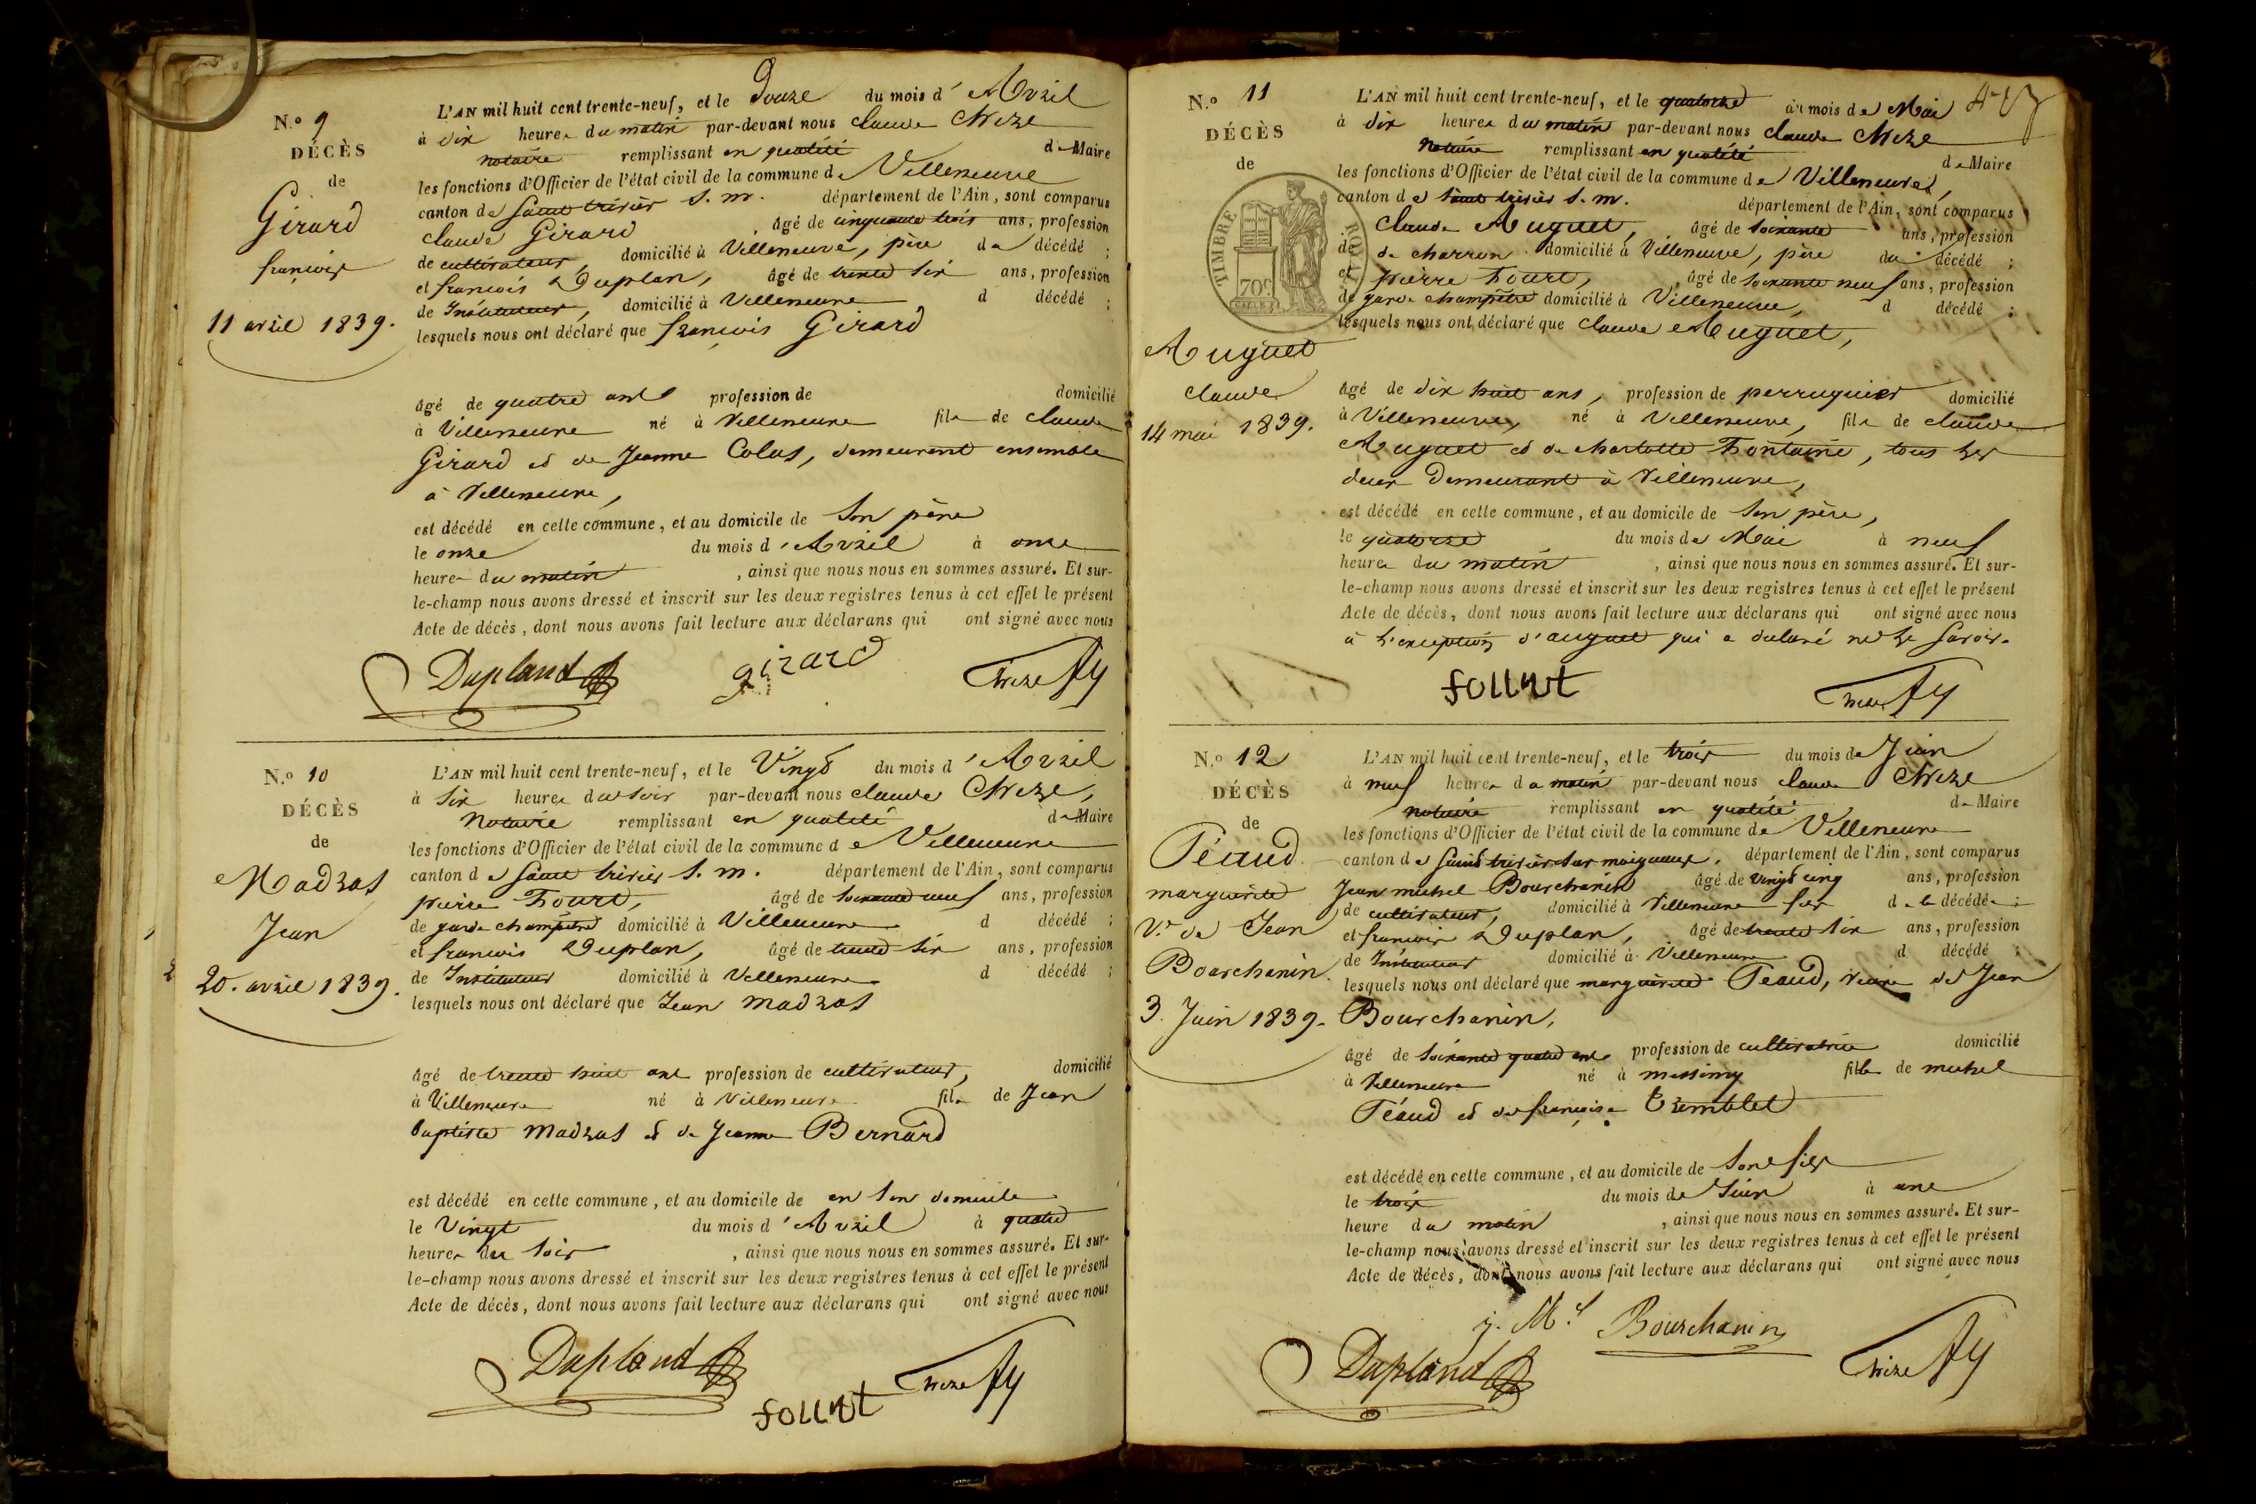 N.o 9
DÉCÈS
de
Girard
françois
11 avril 1839.
L'AN mil huit cent trente-neuf, et le Douze du mois d'Avril
à dix heures du matin par-devant nous claude
notaire remplissant en qualité de Maire
les fonctions d'Officier de l'état civil de la commune de Villeneuve
canton de saint trivier s. m. département de l'Ain, sont comparus
claude Girard, âgé de cinquante trois ans, profession
de cultivateur, domicilié à Villeneuve, père du décédé ;
et françois Duplan, âgé de trente six ans, profession
de Instituteur, domicilié à Villeneuve, d décédé ;
lesquels nous ont déclaré que françois Girard
âgé de quatre ans profession de domicilié
à Villeneuve né à Villeneuve fils de claude
Girard et de Jeanne Colas, demeurant ensemble
à Villeneuve,
est décédé en cette commune, et au domicile de son père
le onze du mois d'Avril à onze
heures du matin, ainsi que nous nous en sommes assuré. Et sur-
le-champ nous avons dressé et inscrit sur les deux registres tenus à cet effet le présent
Acte de décès, dont nous avons fait lecture aux déclarans qui ont signé avec nous
Dupland girard
N.o 10
DÉCÈS
de
Madras
Jean
20. avril 1839.
L'AN mil huit cent trente-neuf, et le Vingt du mois d'Avril
à six heures du soir par-devant nous claude
Notaire remplissant en qualité de Maire
les fonctions d'Officier de l'état civil de la commune de Villeneuve
canton de saint trivier s. m. département de l'Ain, sont comparus
pierre Fourt, âgé de soixante neuf ans, profession
de garde champêtre domicilié à Villeneuve d décédé ;
et françois Duplan, âgé de trente six ans, profession
de Instituteur domicilié à Villeneuve d décédé ;
lesquels nous ont déclaré que Jean Madras
âgé de trente huit ans profession de cultivateur, domicilié
à Villeneuve né à Villeneuve fils de Jean
Baptiste Madras et de Jeanne Bernard
est décédé en cette commune, et au domicile de en son domicile
le Vingt du mois d'Avril à quatre
heures du soir, ainsi que nous nous en sommes assuré. Et sur-
le-champ nous avons dressé et inscrit sur les deux registres tenus à cet effet le présent
Acte de décès, dont nous avons fait lecture aux déclarans qui ont signé avec nous
Dupland
N.o 11
DÉCÈS
de
TIMBRE ROYAL
70c
Auguet
claude
14 mai 1839.
L'AN mil huit cent trente-neuf, et le quatorze du mois de Mai
à dix heures du matin par-devant nous claude
Notaire remplissant en qualité de Maire
les fonctions d'Officier de l'état civil de la commune de Villeneuve,
canton de saint trivier s. m. département de l'Ain, sont comparus
Claude Auguet, âgé de soixante ans, profession
de de charron domicilié à Villeneuve, père du décédé ;
et pierre Fourt, âgé de soixante neuf ans, profession
de garde champêtre domicilié à Villeneuve, d décédé ;
lesquels nous ont déclaré que claude Auguet,
âgé de dix huit ans, profession de perruquier domicilié
à Villeneuve, né à Villeneuve, fils de claude
Auguet et de charlotte Fontaine, tous les
deux Demeurant à Villeneuve,
est décédé en cette commune, et au domicile de son père,
le quatorze du mois de Mai à neuf
heures du matin, ainsi que nous nous en sommes assuré. Et sur-
le-champ nous avons dressé et inscrit sur les deux registres tenus à cet effet le présent
Acte de décès, dont nous avons fait lecture aux déclarans qui ont signé avec nous
à l'exception d'auguet qui a déclaré ne le savoir.
N.o 12
DÉCÈS
de
Péaud
marguerite
V.e de Jean
Bourchanin.
3. Juin 1839.
L'AN mil huit cent trente-neuf, et le trois du mois de Juin
à neuf heures du matin par-devant nous claude
notaire remplissant en qualité de Maire
les fonctions d'Officier de l'état civil de la commune de Villeneuve
canton de saint trivier sur moignans. département de l'Ain, sont comparus
Jean michel Bourchanin âgé de vingt cinq ans, profession
de cultivateur, domicilié à Villeneuve fils de la décédée ;
et françois Duplan, âgé de trente six ans, profession
de Instituteur domicilié à Villeneuve d décédé ;
lesquels nous ont déclaré que marguerite Péaud, veuve de Jean
Bourchanin,
âgé de soixante quatre ans profession de cultivatrice domicilié
à Villeneuve né à messimy fille de michel
Péaud et de françoise tremblet
est décédé en cette commune, et au domicile de son fils
le trois du mois de Juin à une
heure du matin, ainsi que nous nous en sommes assuré. Et sur-
le-champ nous avons dressé et inscrit sur les deux registres tenus à cet effet le présent
Acte de décès, dont nous avons fait lecture aux déclarans qui ont signé avec nous
j. M.el Bourchanin
Dupland